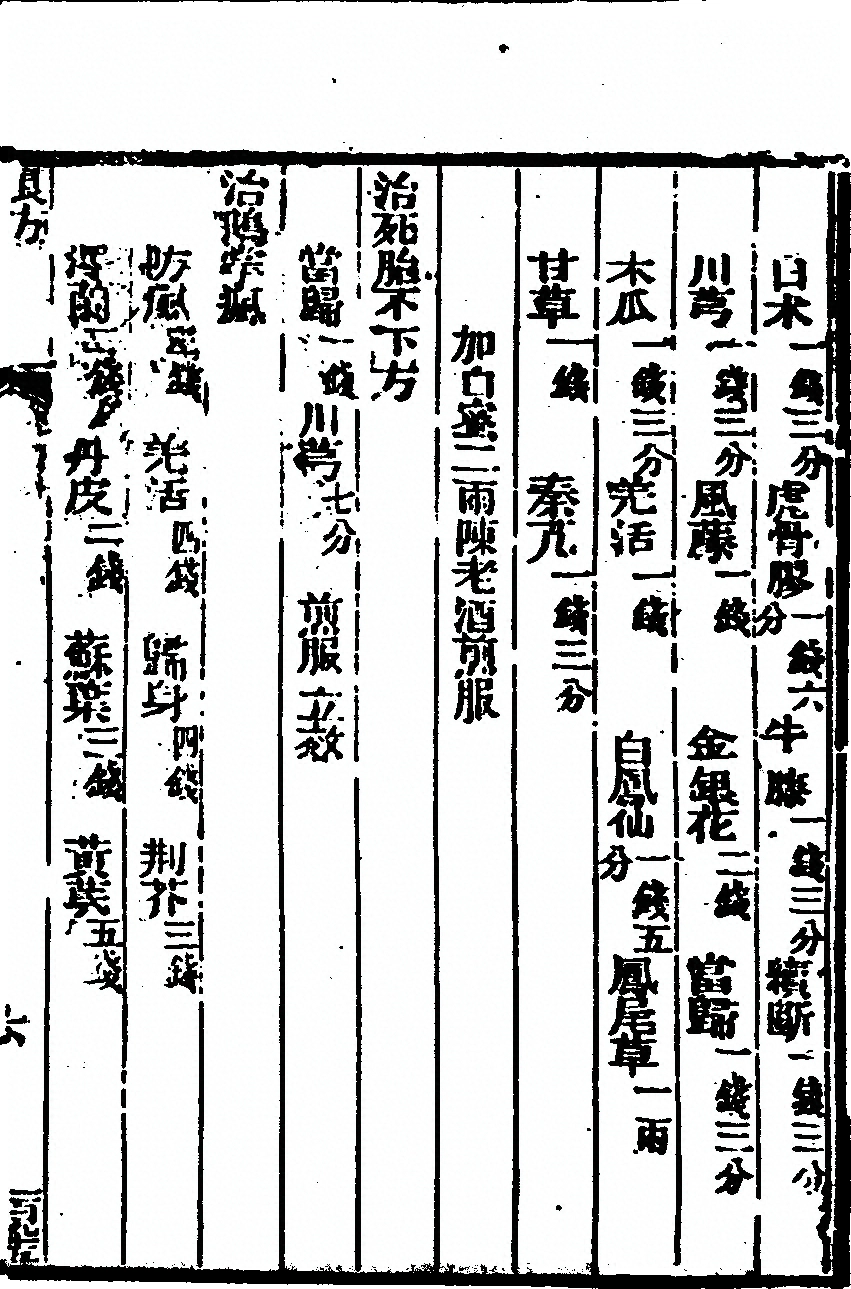 白朮一錢三分 虎骨膠一錢六分 牛膝一錢三分 續斷一錢三分
川芎一錢三分 風藤一錢 金銀花二錢 當歸一錢三分
木瓜一錢三分 羌活一錢 白鳳仙一錢五分 鳳尾草一兩
甘草一錢 秦艽一錢三分
加白蜜二兩陳老酒煎服
治死胎不下方
當歸一錢 川芎七分 煎服立效
治鵝掌瘋
防風四錢 羌活四錢 歸身四錢 荊芥三錢
澤蘭 丹皮二錢 蘇葉三錢 黃芪五錢
良方